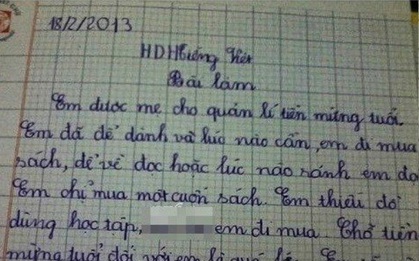 18/2/2013
HDHTiếng Việt
Bài làm
Em được mẹ cho quản lí tiền mừng tuổi.
Em đã để dành và lúc nào cần, em đi mua
sách, để về đọc hoặc lúc nào rảnh em đọ
Em chỉ mua một cuốn sách. Em thiếu đồ
dùng học tập, em đi mua. Chớ tiền
mừng tuổi đối với em là quá